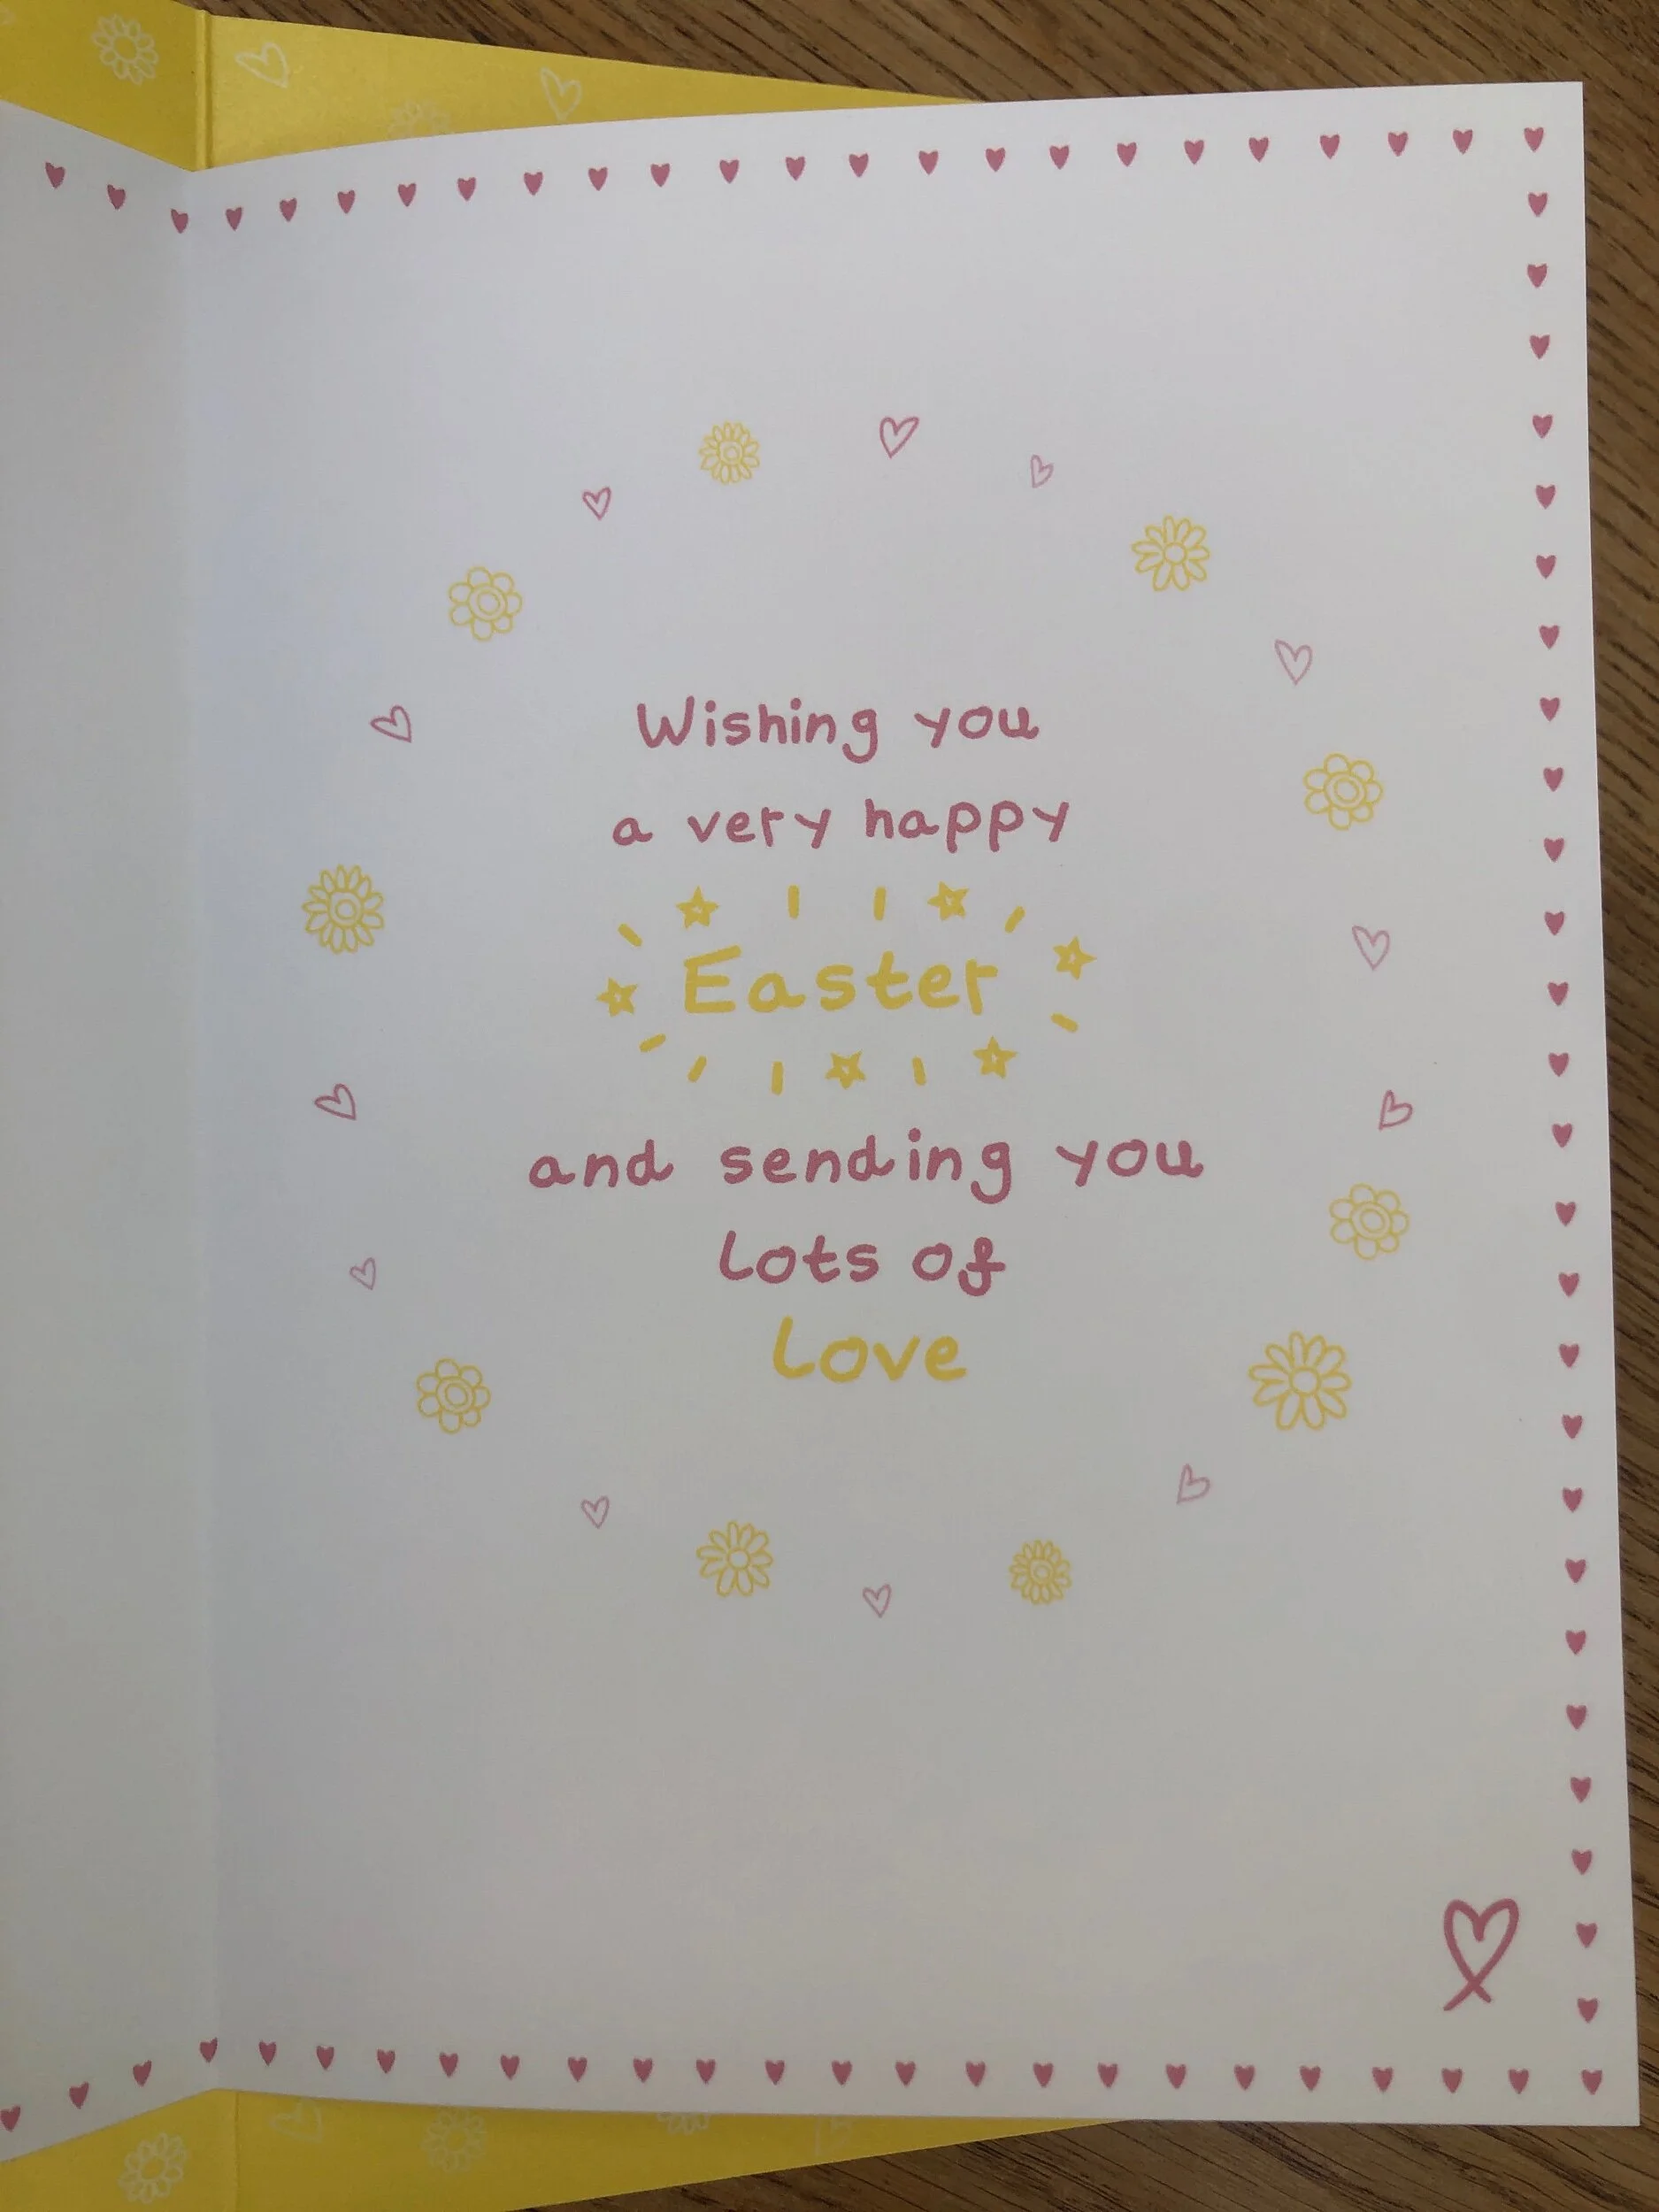 Wishing you
a very happy
Easter
and sending you
lots of
love